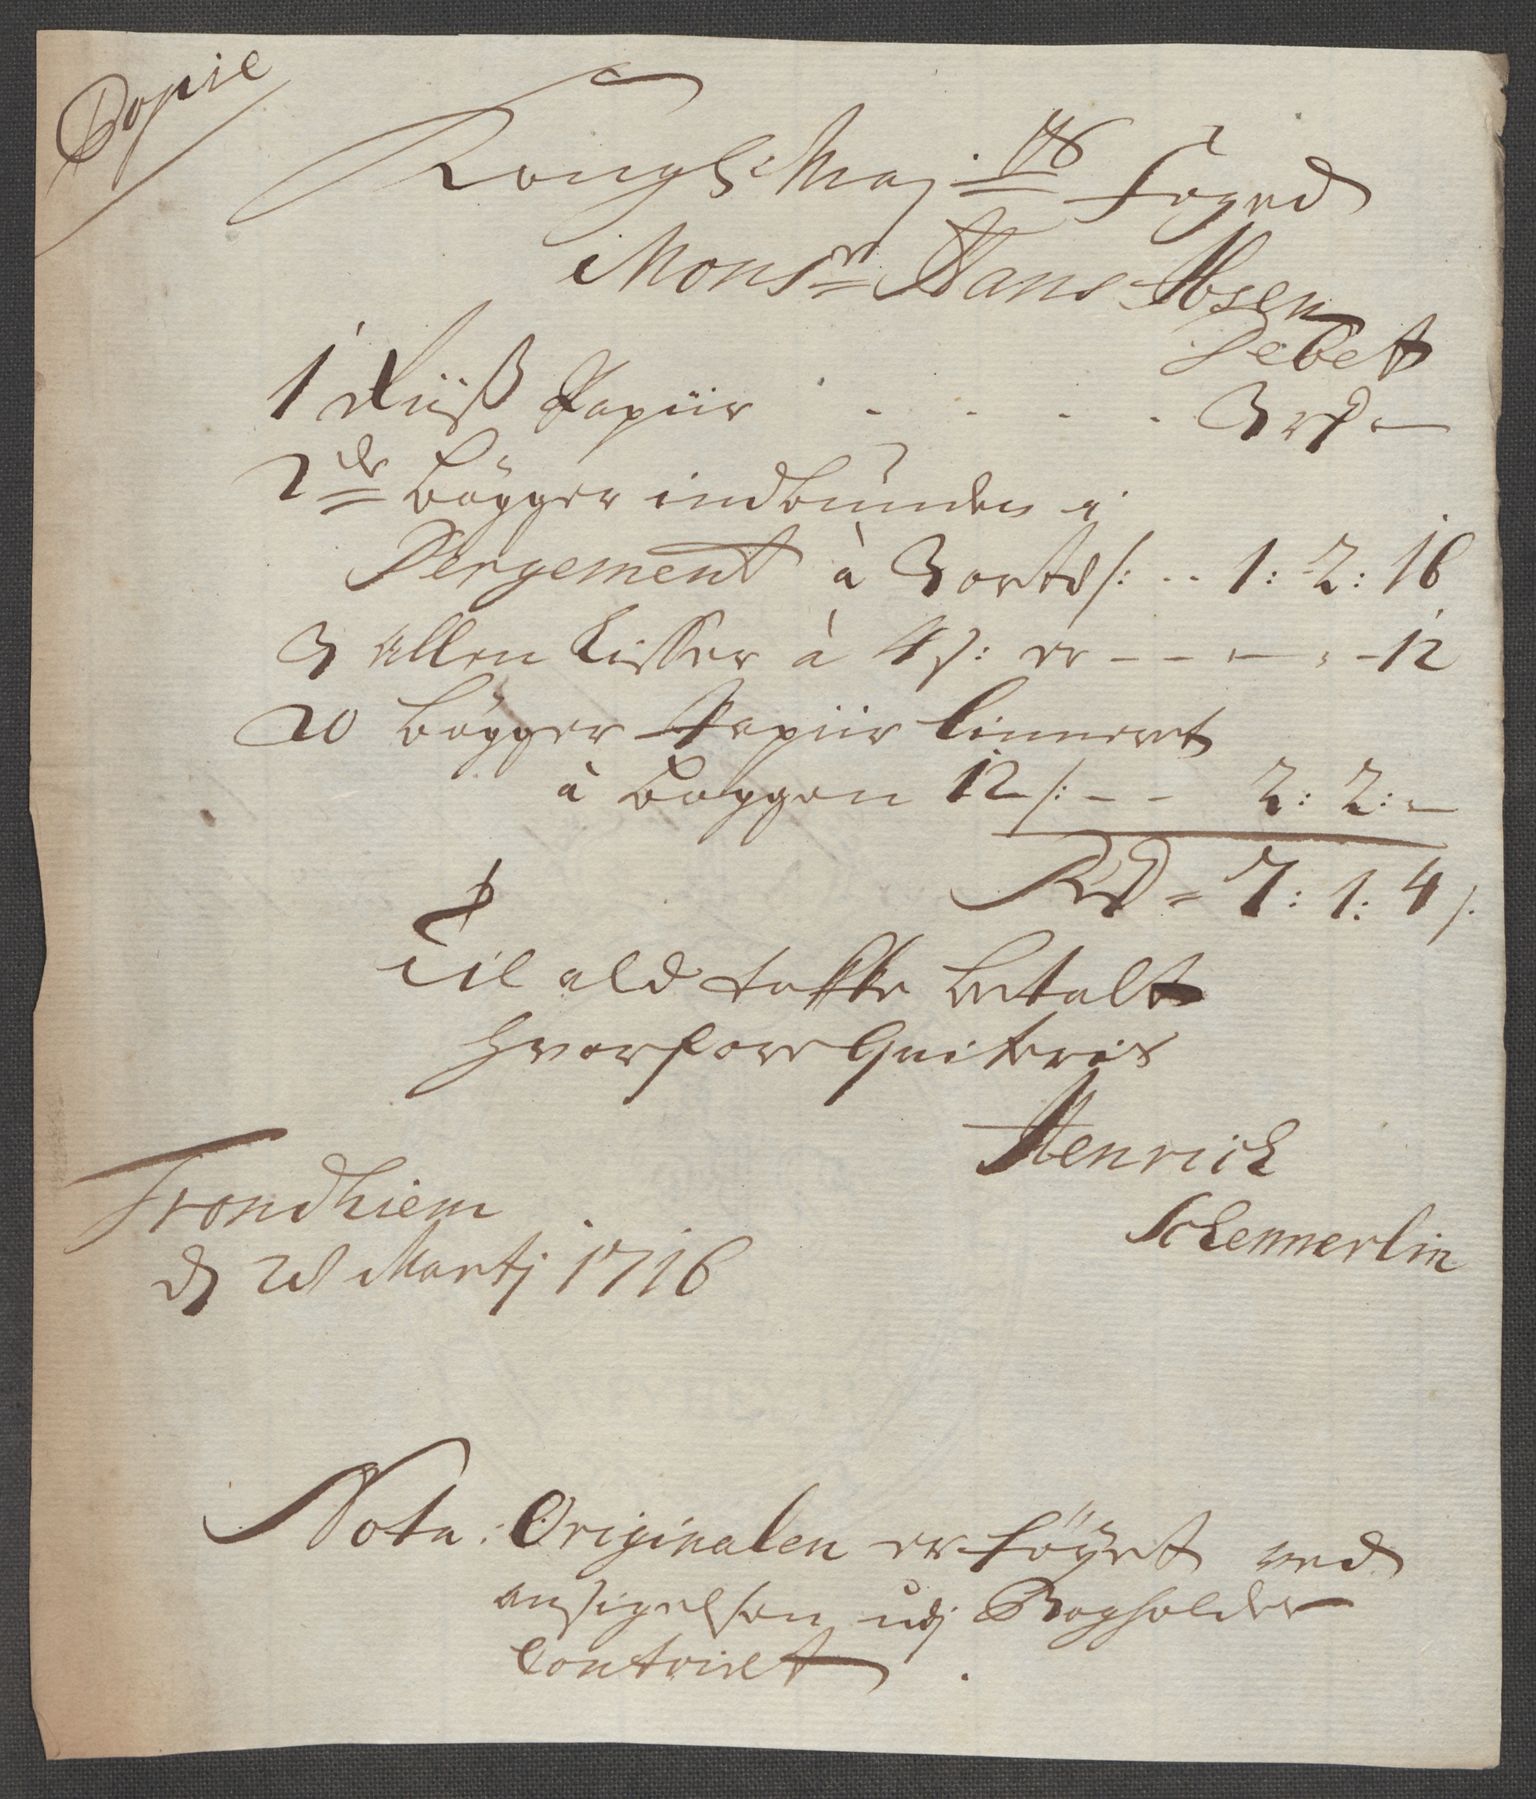 Copie
Kongl: Maj:ts Foged
Monsr Hans Ibsen
Debet
1 Riiß Papiir . . . . . 3 rd —
2de bögger indbunden i
Pergement à 3 ortd/: -- 1: 2: 16
3 Allen Lisser à 4 s: er — — — 12
20 bögger Papiir linneret
à boggen 12 /: — — 2: 2: —
Rd = 7: 1: 4 /.
Til ald takke betalt
hvorfore Quiteris
Henrich
Schemmerlin
Trondhiem
d 28 Martj 1716
Nota: Originalen er föyet ved
ansigelsen udj Bogholder
Contoiret.